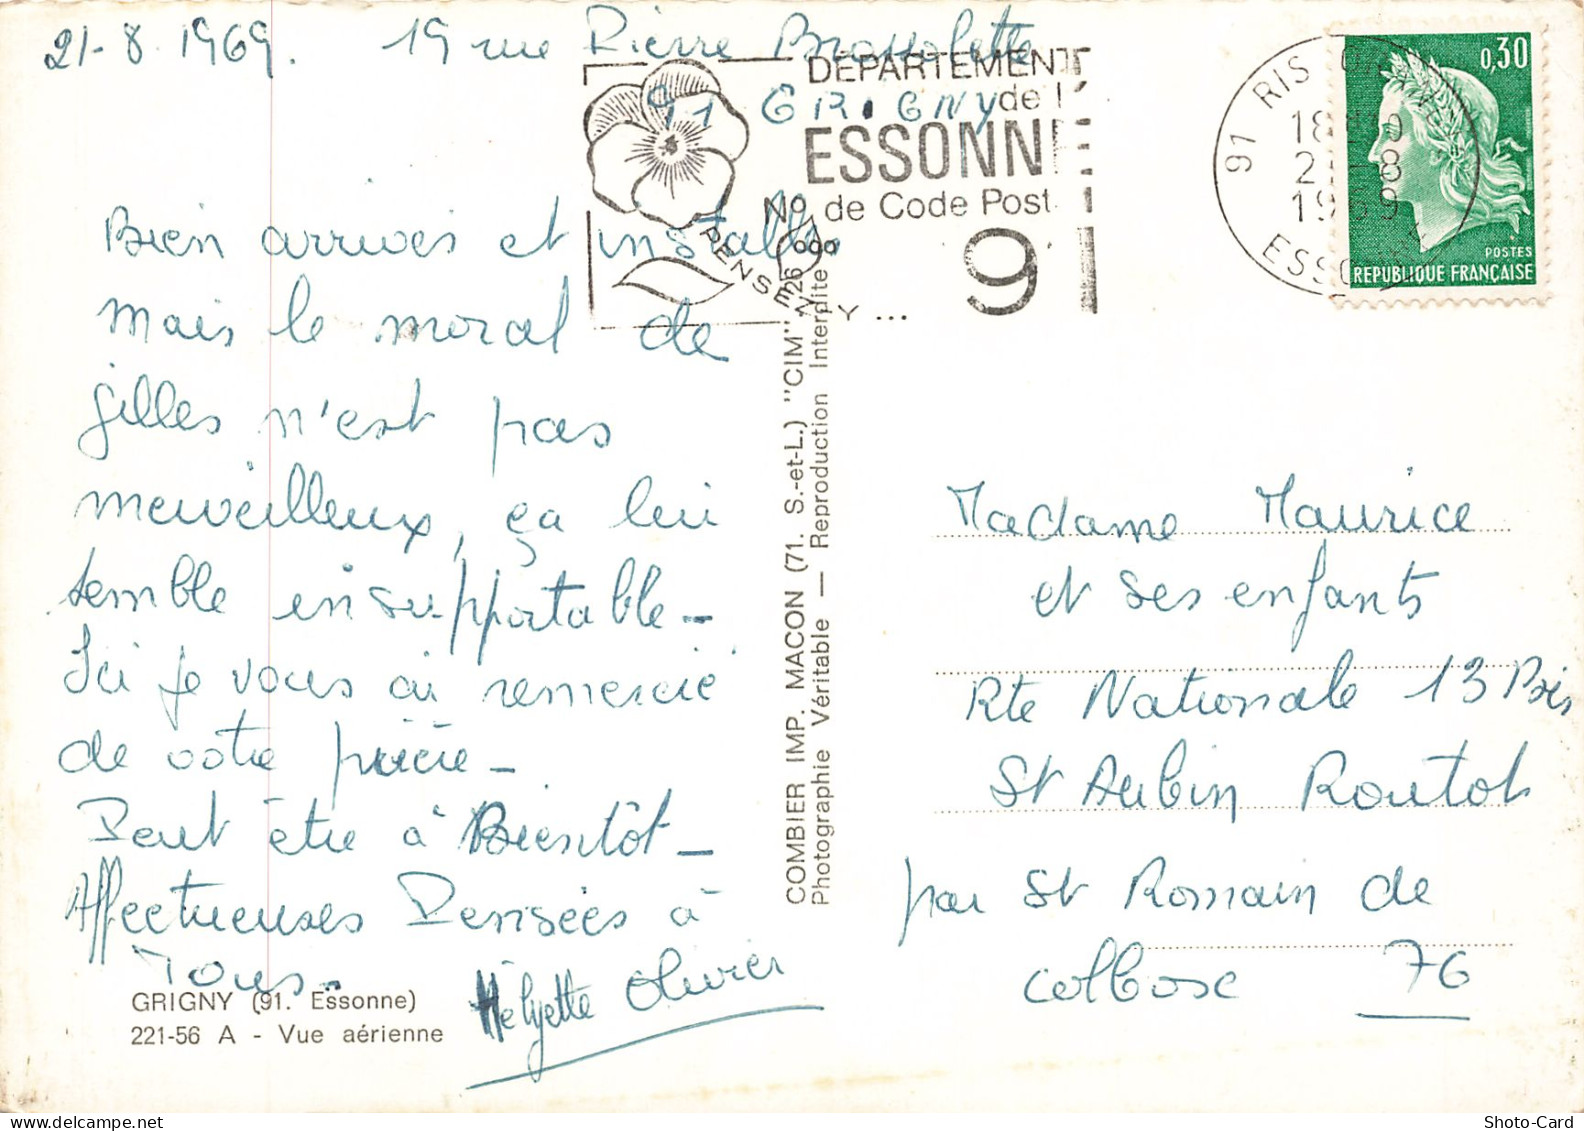 21-8 1969. 19 rue Pierre Brossolette
91 GRIGNY
Bien arrivés et installés
mais le moral de
gilles n'est pas
merveilleux, ça lui
semble insupportable -
Ici je vous ai remercié
de votre prière -
Peut être à Bientôt -
Affectueuses Pensées à
Tous -
Hélyette Olivier
GRIGNY (91. Essonne)
221-56 A - Vue aérienne
DÉPARTEMENT
de l'
ESSONNE
No de Code Post
91
PENSEZ-Y ...
COMBIER IMP. MACON (71. S.-et-L.) "CIM"
Photographie Véritable — Reproduction Interdite
91 RIS
18
21-8
1969
ESSONNE
0,30
POSTES
REPUBLIQUE FRANÇAISE
Madame Maurice
et ses enfants
Rte Nationale 13 Bis
St Aubin Routot
par St Romain de
Colbosc 76
Shoto-Card